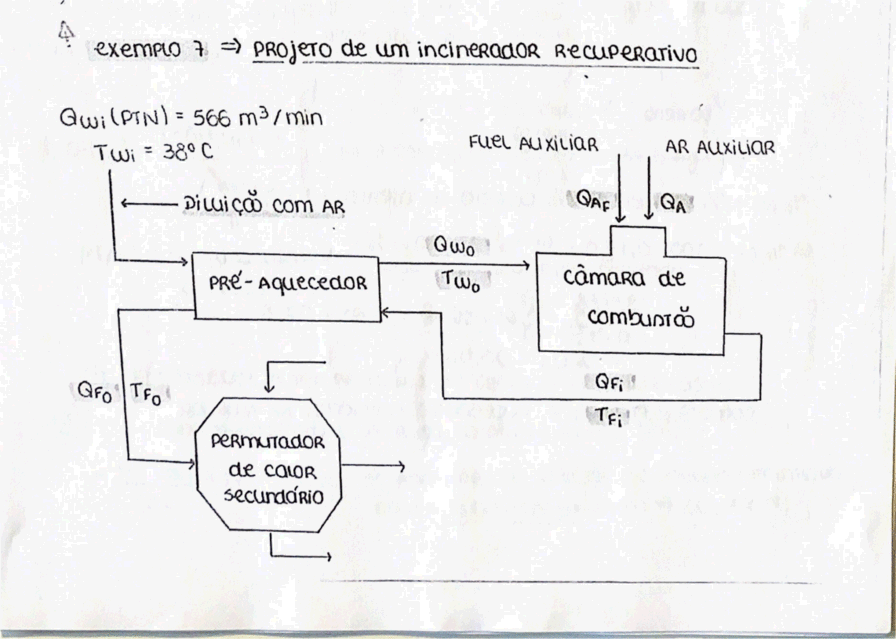 exemplo 7 => PROJETO de um incinerador Recuperativo
Qwi (PTN) = 566 m³/min
Twi = 38ºC
Fuel Auxiliar
AR Auxiliar
Diluição com AR
QAF
QA
Qwo
Two
PRé-Aquecedor
câmara de
combustão
QFi
TFi
QFo
TFo
permutador
de calor
secundário